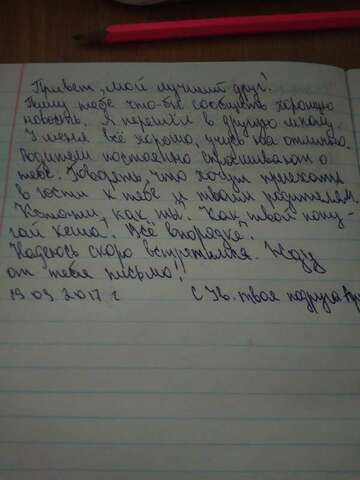 Привет, мой лучший друг!
Пишу тебе что-бы сообщить хорошую
новость. Я перешла в другую школу.
У меня всё хорошо, учусь на отлично.
Родители постоянно спрашивают о
тебе. Говорять, что хочут приехать
в гости к тебе и твоим родителям.
Кстати, как ты. Как твой попу-
гай кеша. Всё впорядке?
Надеюсь скоро встретимся. Жду
от тебя письмо!
19 09 2017 г С Ув. твоя подруга